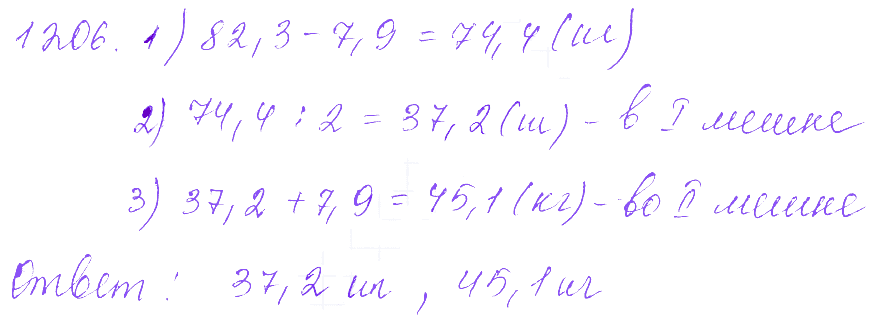 1206. 1) 82,3 - 7,9 = 74,4 (кг)
2) 74,4 : 2 = 37,2 (кг) - в I мешке
3) 37,2 + 7,9 = 45,1 (кг) - во II мешке
Ответ: 37,2 кг, 45,1 кг